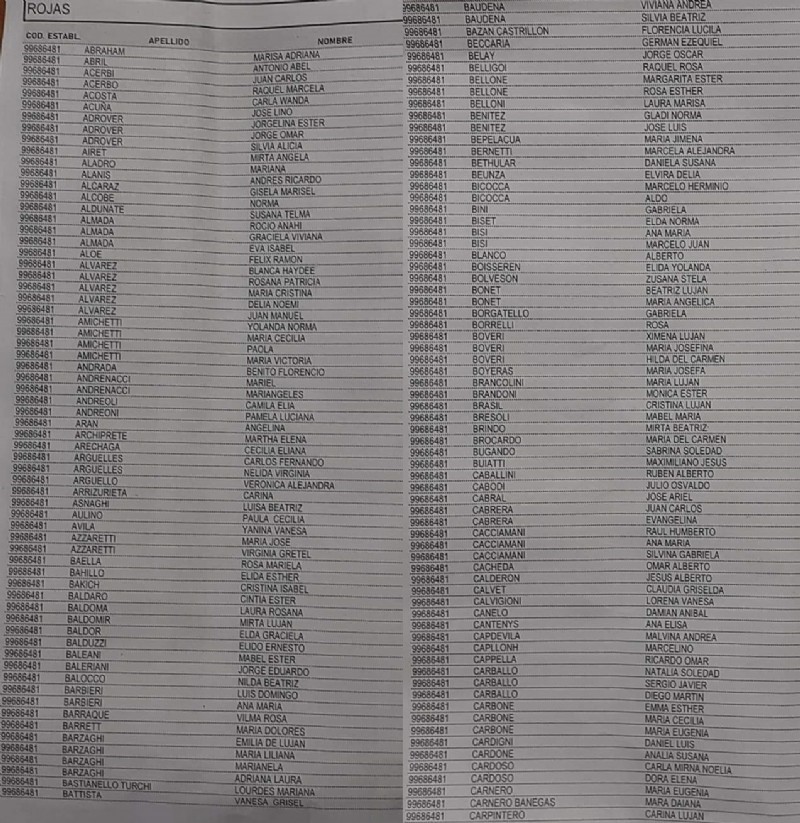 ROJAS
COD. ESTABL. APELLIDO NOMBRE
99686481 ABRAHAM MARISA ADRIANA
99686481 ABRIL ANTONIO ABEL
99686481 ACERBI JUAN CARLOS
99686481 ACERBO RAQUEL MARCELA
99686481 ACOSTA CARLA WANDA
99686481 ACUÑA JOSE LINO
99686481 ADROVER JORGELINA ESTER
99686481 ADROVER JORGE OMAR
99686481 ADROVER SILVIA ALICIA
99686481 AIRET MIRTA ANGELA
99686481 ALADRO MARIANA
99686481 ALANIS ANDRES RICARDO
99686481 ALCARAZ GISELA MARISEL
99686481 ALCOBE NORMA
99686481 ALDUNATE SUSANA TELMA
99686481 ALMADA ROCIO ANAHI
99686481 ALMADA GRACIELA VIVIANA
99686481 ALMADA EVA ISABEL
99686481 ALOE FELIX RAMON
99686481 ALVAREZ BLANCA HAYDEE
99686481 ALVAREZ ROSANA PATRICIA
99686481 ALVAREZ MARIA CRISTINA
99686481 ALVAREZ DELIA NOEMI
99686481 ALVAREZ JUAN MANUEL
99686481 AMICHETTI YOLANDA NORMA
99686481 AMICHETTI MARIA CECILIA
99686481 AMICHETTI PAOLA
99686481 AMICHETTI MARIA VICTORIA
99686481 ANDRADA BENITO FLORENCIO
99686481 ANDRENACCI MARIEL
99686481 ANDRENACCI MARIANGELES
99686481 ANDREOLI CAMILA ELIA
99686481 ANDREONI PAMELA LUCIANA
99686481 ARAN ANGELINA
99686481 ARCHIPRETE MARTHA ELENA
99686481 ARECHAGA CECILIA ELIANA
99686481 ARGUELLES CARLOS FERNANDO
99686481 ARGUELLES NELIDA VIRGINIA
99686481 ARGUELLO VERONICA ALEJANDRA
99686481 ARRIZURIETA CARINA
99686481 ASNAGHI LUISA BEATRIZ
99686481 AULINO PAULA CECILIA
99686481 AVILA YANINA VANESA
99686481 AZZARETTI MARIA JOSE
99686481 AZZARETTI VIRGINIA GRETEL
99686481 BAELLA ROSA MARIELA
99686481 BAHILLO ELIDA ESTHER
99686481 BAKICH CRISTINA ISABEL
99686481 BALDARO CINTIA ESTER
99686481 BALDOMA LAURA ROSANA
99686481 BALDOMIR MIRTA LUJAN
99686481 BALDOR ELDA GRACIELA
99686481 BALDUZZI ELIDO ERNESTO
99686481 BALEANI MABEL ESTER
99686481 BALERIANI JORGE EDUARDO
99686481 BALOCCO NILDA BEATRIZ
99686481 BARBIERI LUIS DOMINGO
99686481 BARBIERI ANA MARIA
99686481 BARRAQUE VILMA ROSA
99686481 BARRETT MARIA DOLORES
99686481 BARZAGHI EMILIA DE LUJAN
99686481 BARZAGHI MARIA LILIANA
99686481 BARZAGHI MARIANELA
99686481 BARZAGHI ADRIANA LAURA
99686481 BASTIANELLO TURCHI LOURDES MARIANA
99686481 BATTISTA VANESA GRISEL
99686481 BAUDENA VIVIANA ANDREA
99686481 BAUDENA SILVIA BEATRIZ
99686481 BAZAN CASTRILLON FLORENCIA LUCILA
99686481 BECCARIA GERMAN EZEQUIEL
99686481 BELAY JORGE OSCAR
99686481 BELLIGOI RAQUEL ROSA
99686481 BELLONE MARGARITA ESTER
99686481 BELLONE ROSA ESTHER
99686481 BELLONI LAURA MARISA
99686481 BENITEZ GLADI NORMA
99686481 BENITEZ JOSE LUIS
99686481 BEPELACUA MARIA JIMENA
99686481 BERNETTI MARCELA ALEJANDRA
99686481 BETHULAR DANIELA SUSANA
99686481 BEUNZA ELVIRA DELIA
99686481 BICOCCA MARCELO HERMINIO
99686481 BICOCCA ALDO
99686481 BINI GABRIELA
99686481 BISET ELDA NORMA
99686481 BISI ANA MARIA
99686481 BISI MARCELO JUAN
99686481 BLANCO ALBERTO
99686481 BOISSEREN ELIDA YOLANDA
99686481 BOLVESON ZUSANA STELA
99686481 BONET BEATRIZ LUJAN
99686481 BONET MARIA ANGELICA
99686481 BORGATELLO GABRIELA
99686481 BORRELLI ROSA
99686481 BOVERI XIMENA LUJAN
99686481 BOVERI MARIA JOSEFINA
99686481 BOVERI HILDA DEL CARMEN
99686481 BOYERAS MARIA JOSEFA
99686481 BRANCOLINI MARIA LUJAN
99686481 BRANDONI MONICA ESTER
99686481 BRASIL CRISTINA LUJAN
99686481 BRESOLI MABEL MARIA
99686481 BRINDO MIRTA BEATRIZ
99686481 BROCARDO MARIA DEL CARMEN
99686481 BUGANDO SABRINA SOLEDAD
99686481 BUIATTI MAXIMILIANO JESUS
99686481 CABALLINI RUBEN ALBERTO
99686481 CABODI JULIO OSVALDO
99686481 CABRAL JOSE ARIEL
99686481 CABRERA JUAN CARLOS
99686481 CABRERA EVANGELINA
99686481 CACCIAMANI RAUL HUMBERTO
99686481 CACCIAMANI ANA MARIA
99686481 CACCIAMANI SILVINA GABRIELA
99686481 CACHEDA OMAR ALBERTO
99686481 CALDERON JESUS ALBERTO
99686481 CALVET CLAUDIA GRISELDA
99686481 CALVIGIONI LORENA VANESA
99686481 CANELO DAMIAN ANIBAL
99686481 CANTENYS ANA ELISA
99686481 CAPDEVILA MALVINA ANDREA
99686481 CAPLLONH MARCELINO
99686481 CAPPELLA RICARDO OMAR
99686481 CARBALLO NATALIA SOLEDAD
99686481 CARBALLO SERGIO JAVIER
99686481 CARBALLO DIEGO MARTIN
99686481 CARBONE EMMA ESTHER
99686481 CARBONE MARIA CECILIA
99686481 CARBONE MARIA EUGENIA
99686481 CARDIGNI DANIEL LUIS
99686481 CARDONE ANALIA SUSANA
99686481 CARDOSO CARLA MIRNA NOELIA
99686481 CARDOSO DORA ELENA
99686481 CARNERO MARIA EUGENIA
99686481 CARNERO BANEGAS MARA DAIANA
99686481 CARPINTERO CARINA LUJAN